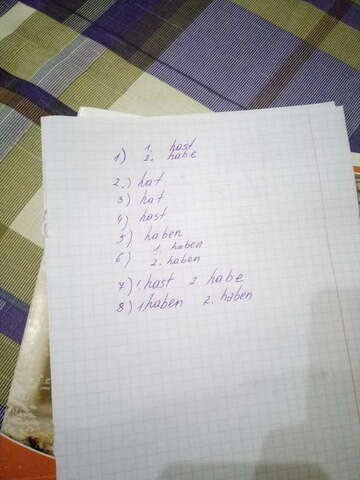 1) 1. hast
2. habe
2.) hat
3) hat
4) hast
5) haben
6) 1. haben
2. haben
7) 1. hast 2 habe
8) 1 haben 2. haben